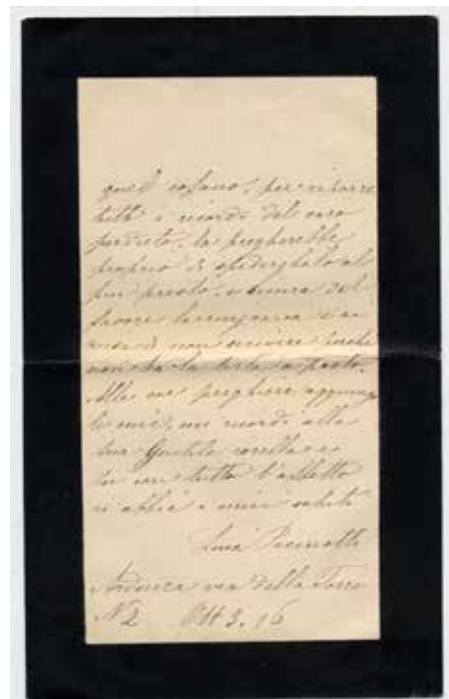 quel cofano, per riporre
tutti i ricordi del caro
perduto, la pregherebbe
proprio di spedirglielo al
più presto,
favore la ringrazia e
di non scrivere
non ha la testa a posto.
Alle sue preghiere aggiungo
le mie, mi ricordi alla
sua Gentile sorella e
lei con tutto l'affetto
si abbia i miei saluti
via della Torre
N 2